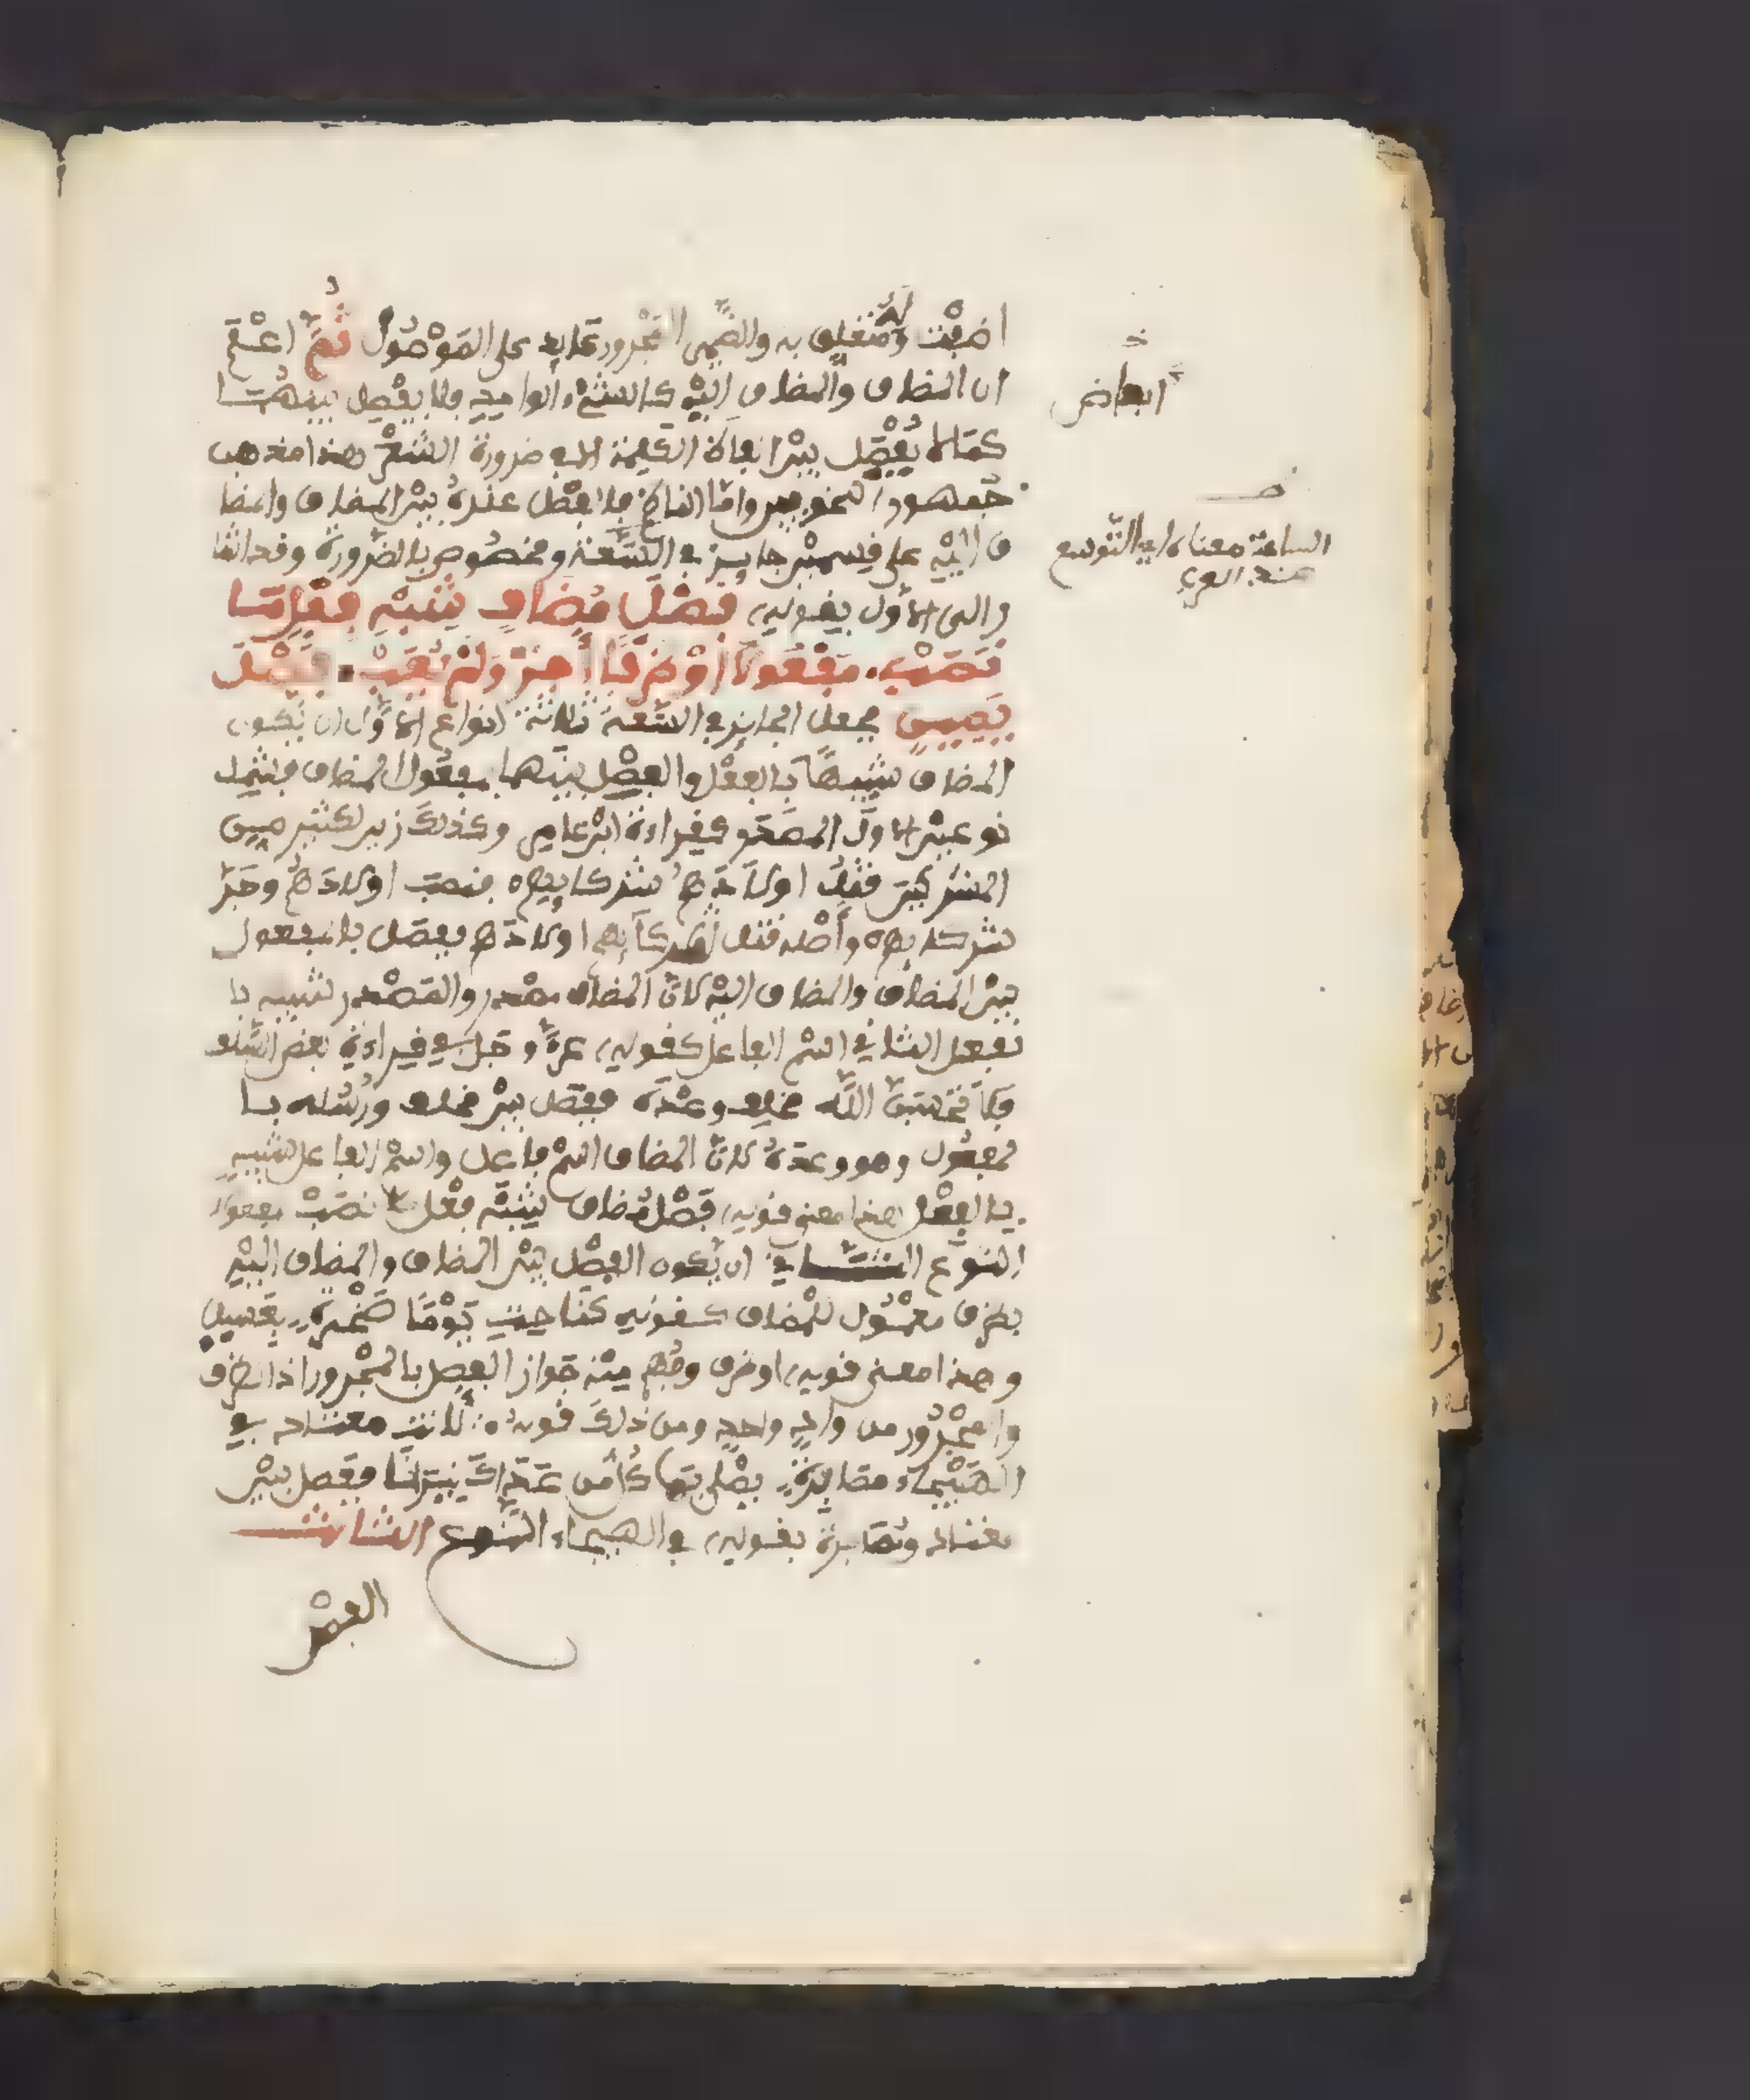 اضيفت ومتعلق به والضمير المجرور عايد على الموصول ثم اعلم
ان المضاف والمضاف اليه كالشيء الواحد فلا يفصل بينهما
كما لا يفصل بين ابعاض الكلمة الا في ضرورة الشعر هذا مذهب
جمهور النحويين واما الناظم فالفصل عنده بين المضاف والمضا
ف اليه على قسمين جايز في السعة ومخصوص بالضرورة وقد اشا
ر الى الاول بقوله فصل مضاف شبه فعل ما
نصب مفعولا او ظرفا أجز ولم يعب فصل
يمين فجعل الجايز في السعة ثلاثة انواع الاول ان يكون
المضاف شبيها بالفعل والفصل بينهما بمفعول المضاف فشمل
نوعين الاول المصدر كقراءة ابن عامر وكذلك زين لكثير من
المشركين قتل اولادهم شركايهم فنصب اولادهم وجر
شركايهم وأصله قتل شركآيهم اولادهم ففصل بالمفعول
بين المضاف والمضاف اليه لان المضاف مصدر والمصدر شبيه با
لفعل الثاني اسم الفاعل كقوله عز وجل في قراءة بعض السلف
فلا تحسبن الله مخلف وعده رسله ففصل بين مخلف ورسله با
لمفعول وهو وعده لان المضاف اسم فاعل واسم الفاعل شبيه
بالفعل هذا معنى قوله فصل مضاف شبه فعل ما نصب مفعولا
النوع الثاني ان يكون الفصل بين المضاف والمضاف اليه
بظرف معمول للمضاف كقوله كناحت يوما صخرة بعسيل
وهذا معنى قوله او ظرفا وفهم منه جواز الفصل بالمجرور اذ الظرف
والمجرور من واد واحد ومن ذلك قوله لانت معتاد في
الهيجاء مصابرة يصلى بها كل من عاداك نيرانا ففصل بين
معتاد ومصابرة بقوله في الهيجاء النوع الثالث
الفصل
ابعاض
السعة معناه اي التوسع
عند العرب